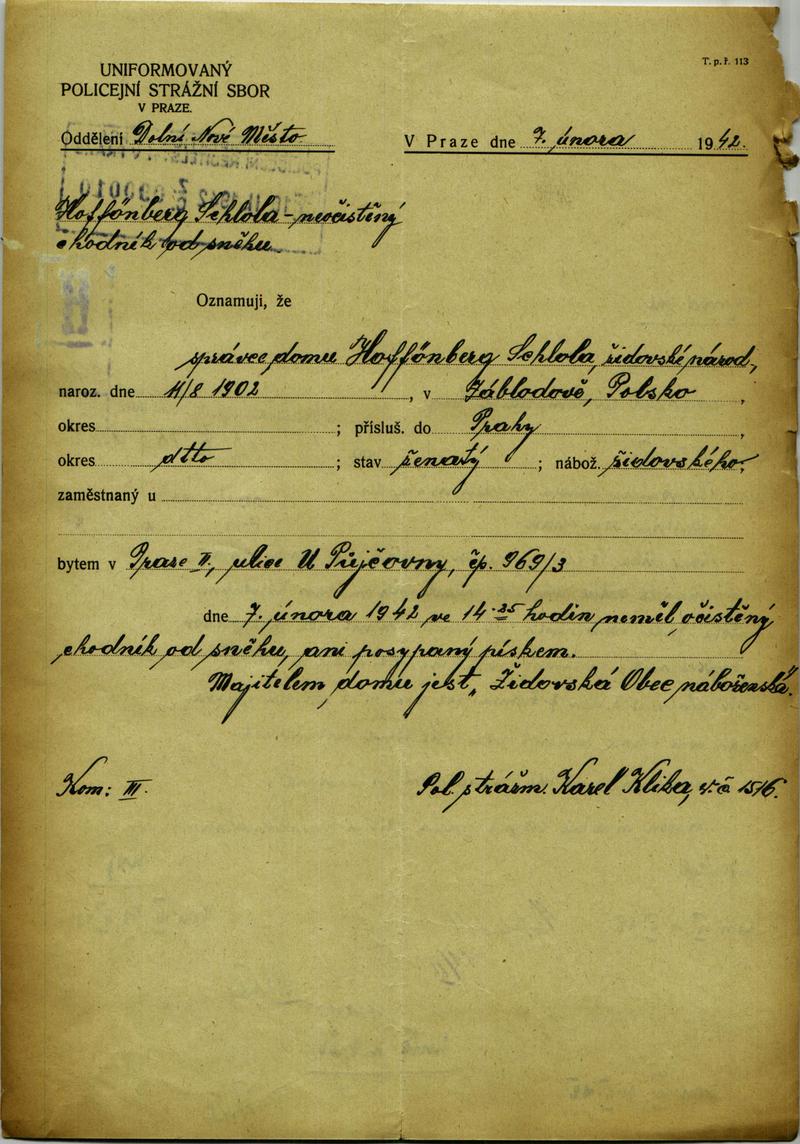 T. p. ř. 113
UNIFORMOVANÝ
POLICEJNÍ STRÁŽNÍ SBOR
V PRAZE.
Oddělení Dolní Nové Město
V Praze dne 7. února 1942.
Hoffönberg Schlola - neočistěný
chodník od sněhu
Oznamuji, že
správce domu Hoffönberg Schlola, židovské národ.,
naroz. dne 11/8 1902, v Záblodově, Polsko,
okres ; přísluš. do Prahy,
okres dtto ; stav ženatý ; nábož. židovského,
zaměstnaný u
bytem v Praze II, ulice U Půjčovny, čp. 969/3
dne 7. února 1942 ve 14.25 hodin neměl očistěný
chodník od sněhu, ani posypaný pískem.
Majitelem domu jest „Židovská Obec náboženská.
Kom: III.
Pol. strážm. Karel Klika, sl. č. 1516.